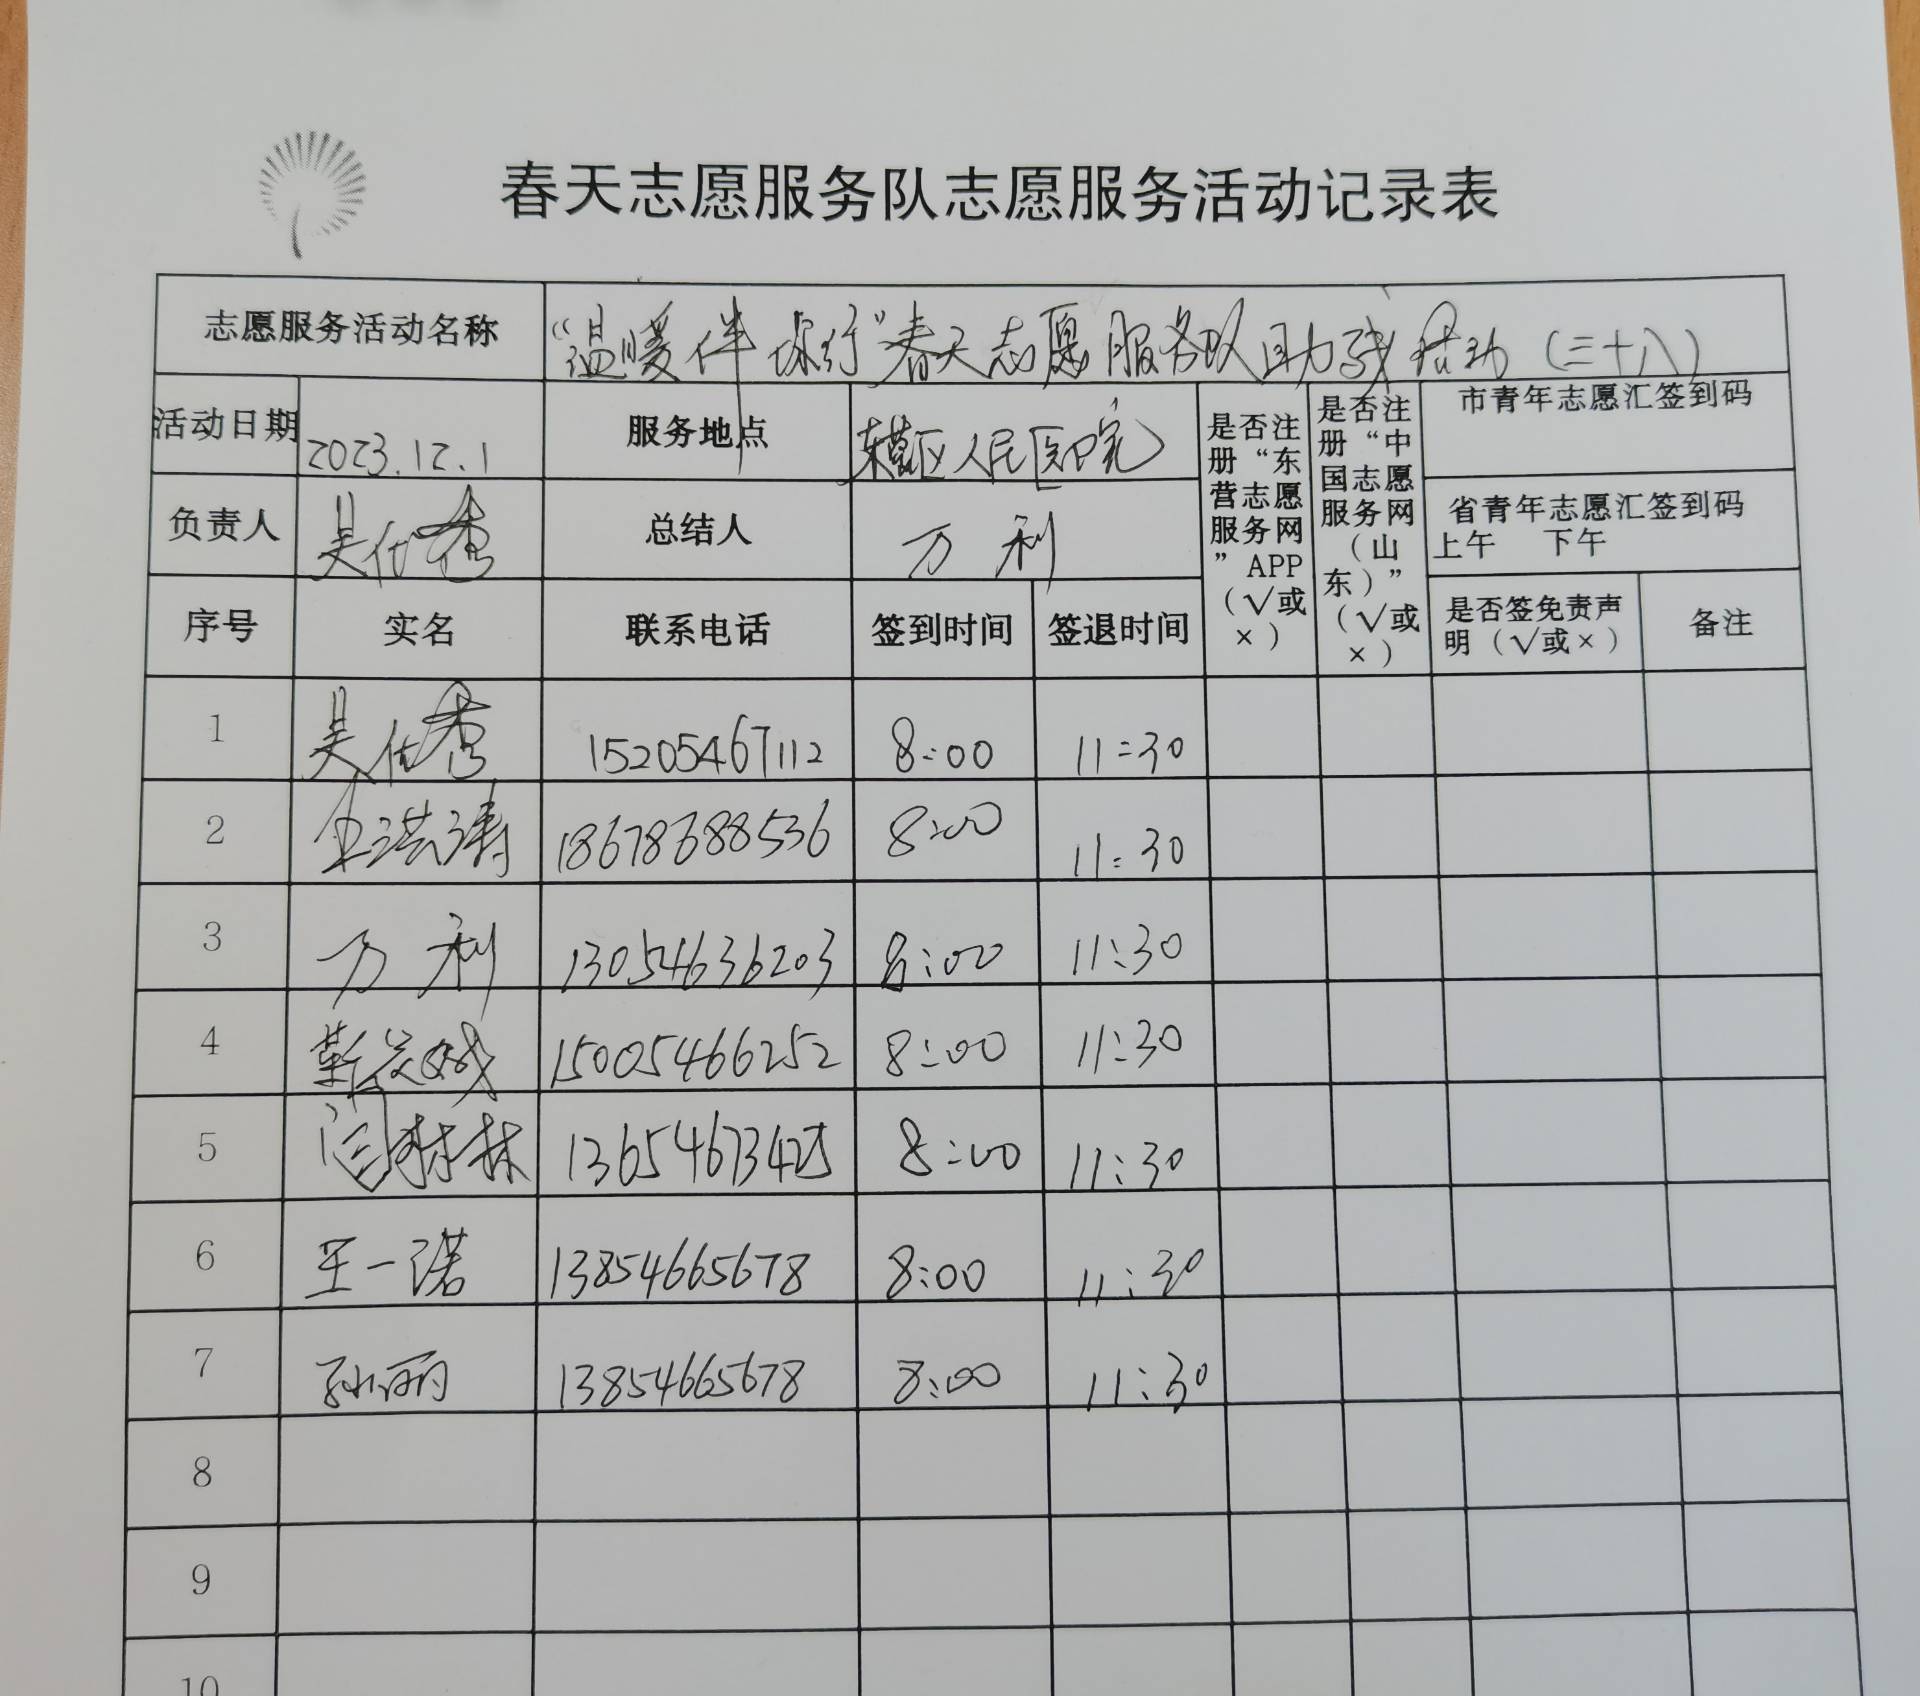 春天志愿服务队志愿服务活动记录表
志愿服务活动名称 “温暖伴 行”春天志愿服务队助残活动（三十八）
活动日期 2023.12.1 服务地点 东营区人民医院
是否注册“东营志愿服务网”APP（√或×）
是否注册“中国志愿服务网（山东）”（√或×）
市青年志愿汇签到码
负责人 吴仕香 总结人 万利
省青年志愿汇签到码
上午 下午
序号 实名 联系电话 签到时间 签退时间 是否签免责声明（√或×） 备注
1 吴仕香 15205467112 8:00 11:30
2 王洪涛 18678688536 8:00 11:30
3 万利 13054636203 8:00 11:30
4 15005466252 8:00 11:30
5 8:00 11:30
6 王一诺 13854665678 8:00 11:30
7 孙丽 13854665678 8:00 11:30
8
9
10